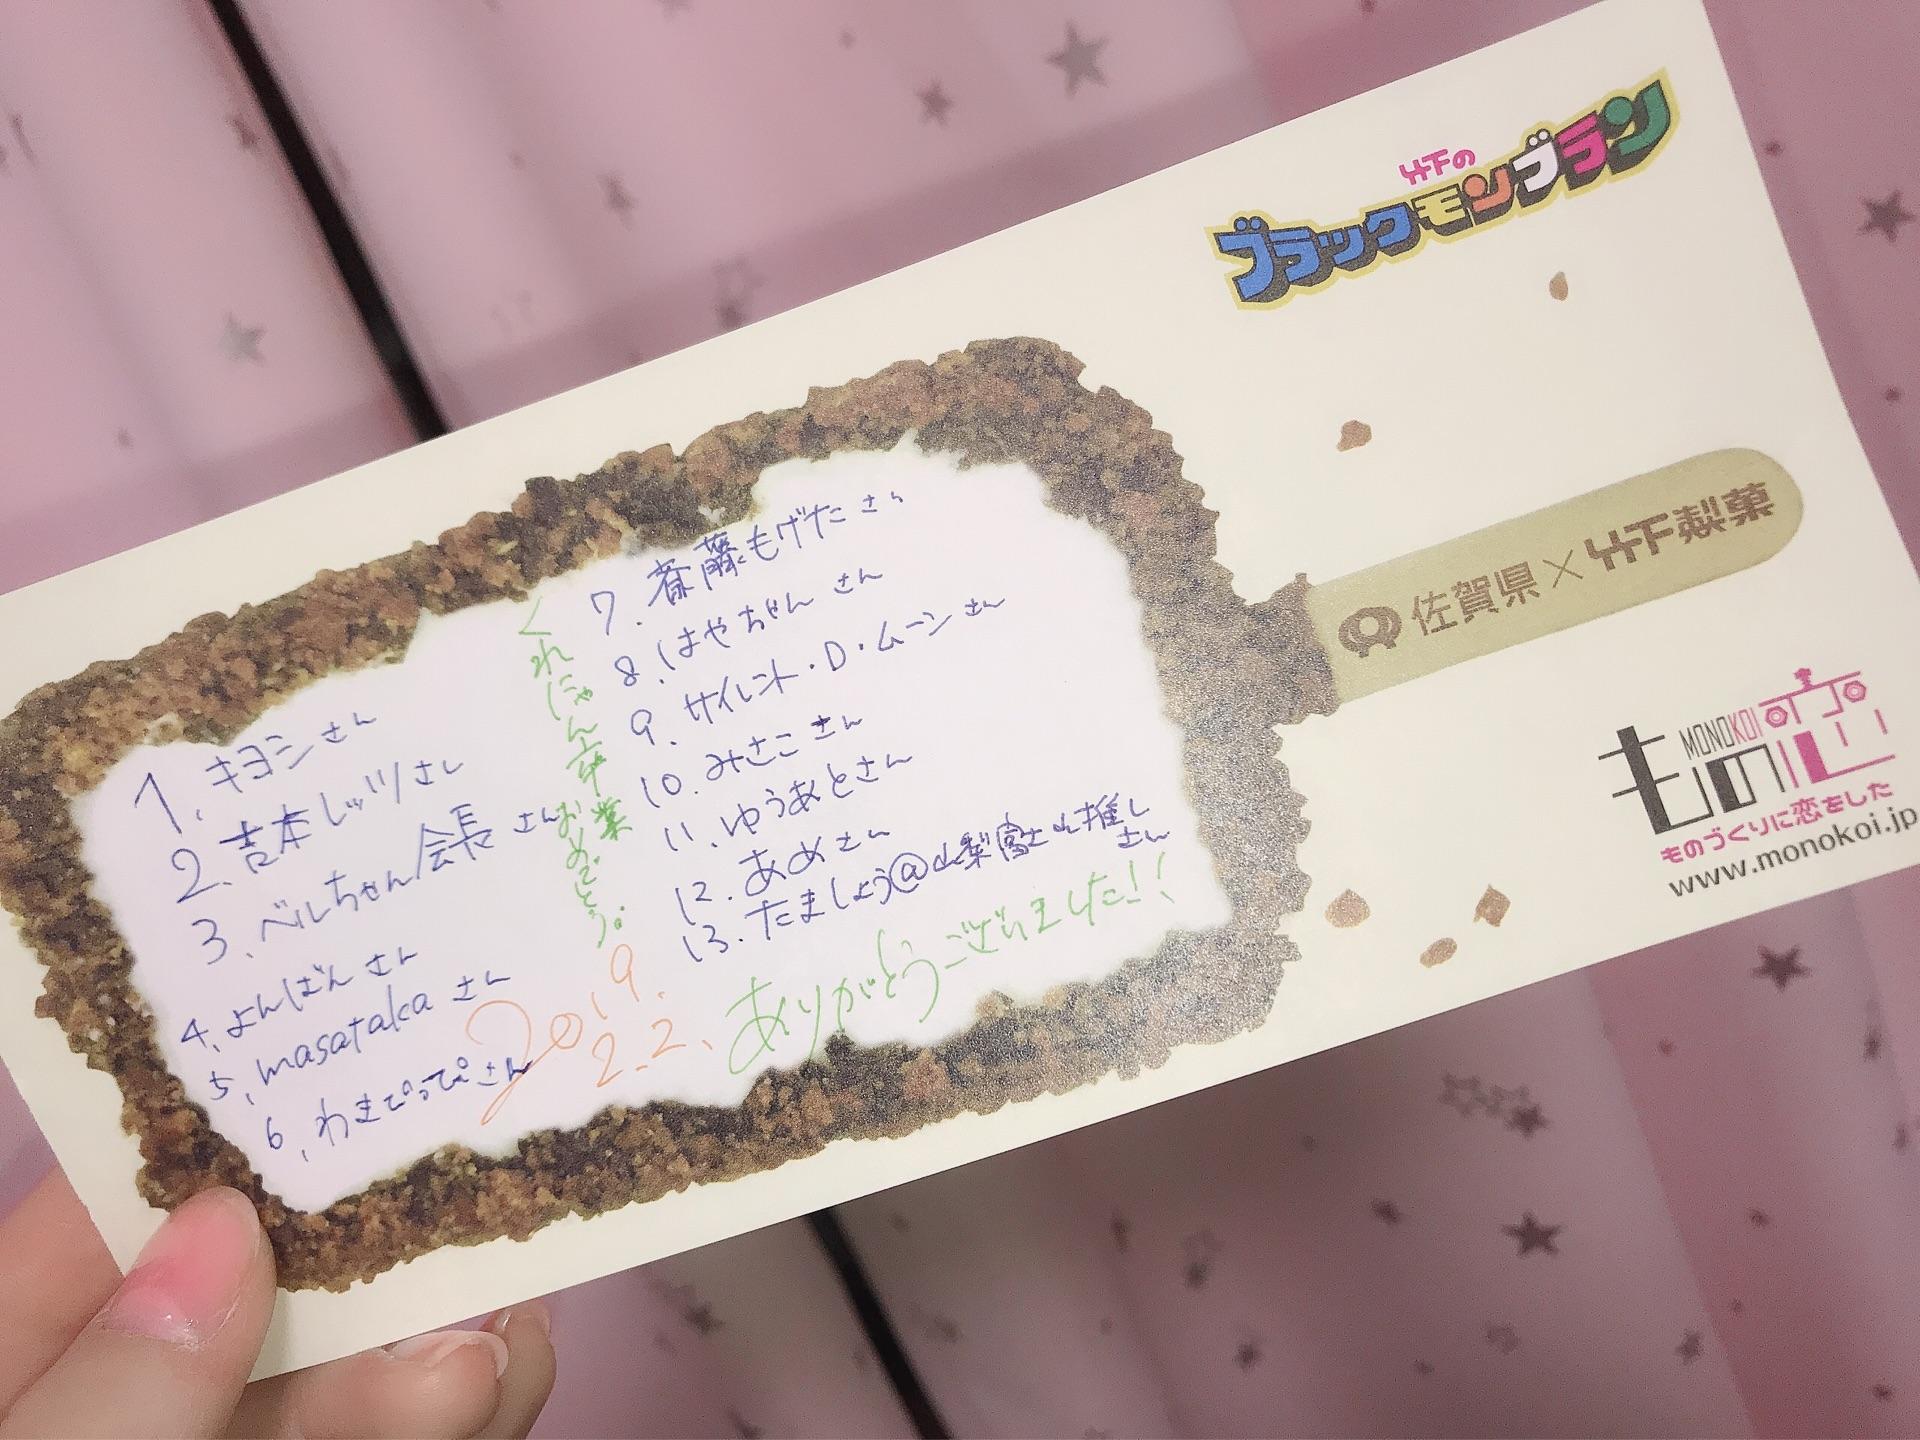 竹下の
ブラックモンブラン
佐賀県×竹下製菓
MONOKOI
ものすごい
ものづくりに恋をした
www.monokoi.jp
1. キヨシさん
2. 吉本レッツさん
3. ベルちゃん/会長さん
4. よんばんさん
5. masatakaさん
6. わまぴっぴさん
くれにゃん卒業
おめでとう。
7. 斎藤もげたさん
8. はやちゃんさん
9. サイレント・D・ムーンさん
10. みさこさん
11. ゆうあとさん
12. あめさん
13. たましょう@山梨富士山推し
さん
2019.
2.2.
ありがとうございました!!